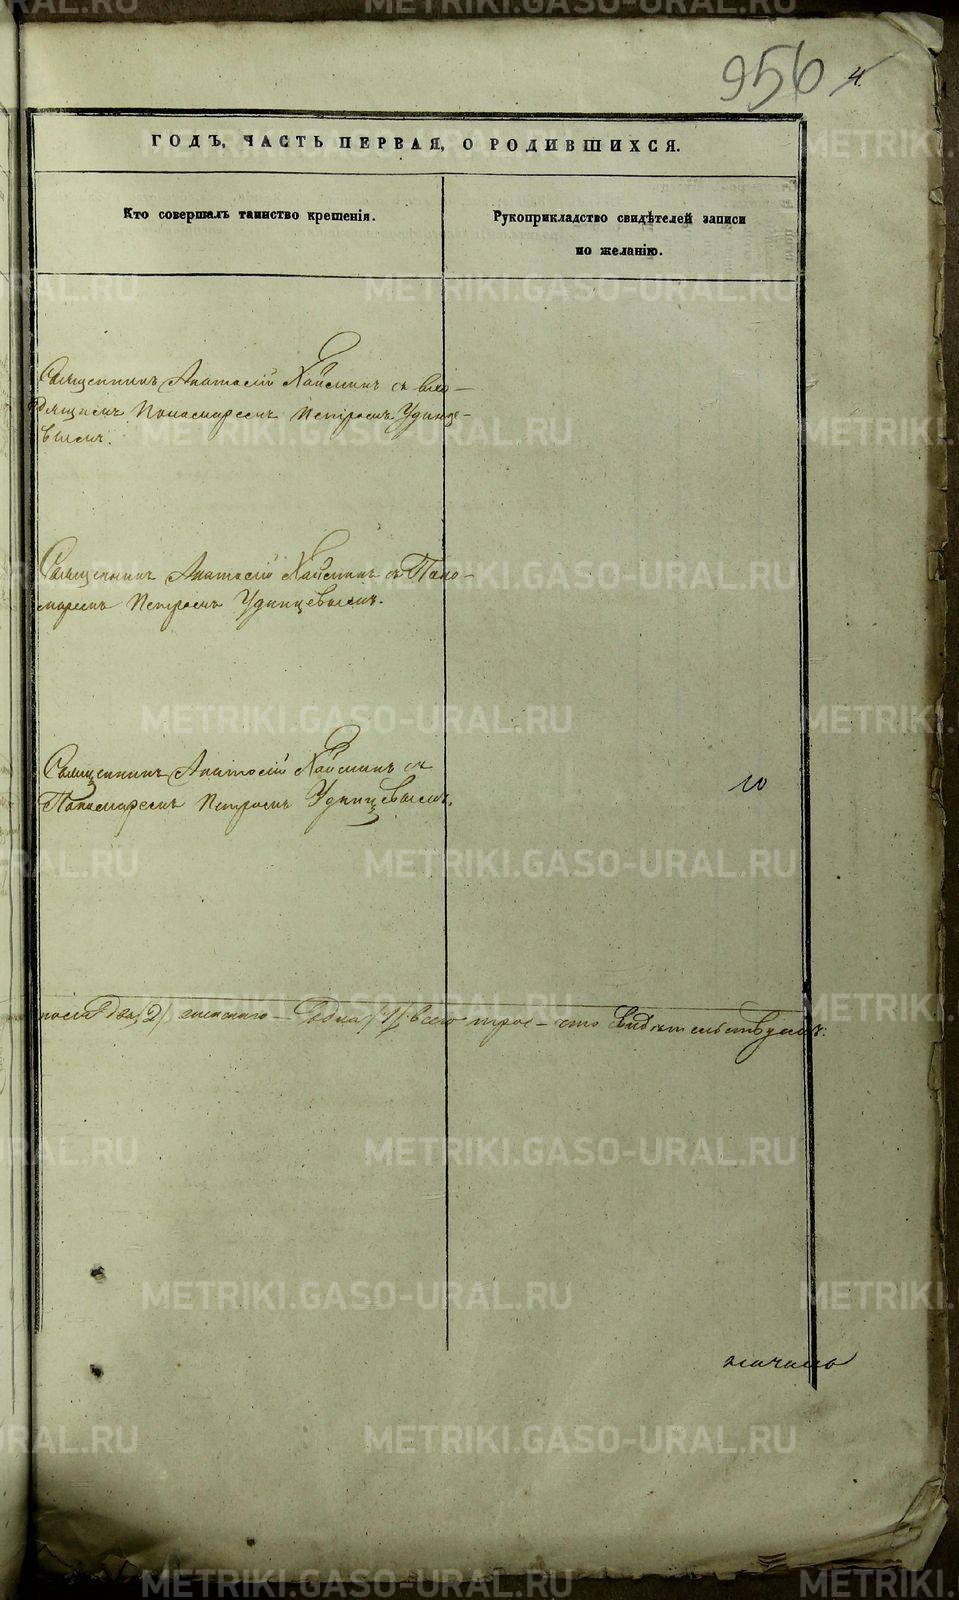 956 4.
ГОДЪ, ЧАСТЬ ПЕРВАЯ, О РОДИВШИХСЯ.
Кто совершалъ таинство крещенія.
Рукоприкладство свидѣтелей записи
по желанію.
Священникъ Анатолій Хайминъ съ
Пономаремъ Петромъ Удинце-
вымъ.
Священникъ Анатолій Хайминъ съ Поно-
маремъ Петромъ Удинцевымъ.
Священникъ Анатолій Хайминъ съ
Пономаремъ Петромъ Удинцевымъ.
10
пола два /2/ женскаго – одна /1/ всего трое – что свидѣтельствуемъ:
METRIKI.GASO-URAL.RU